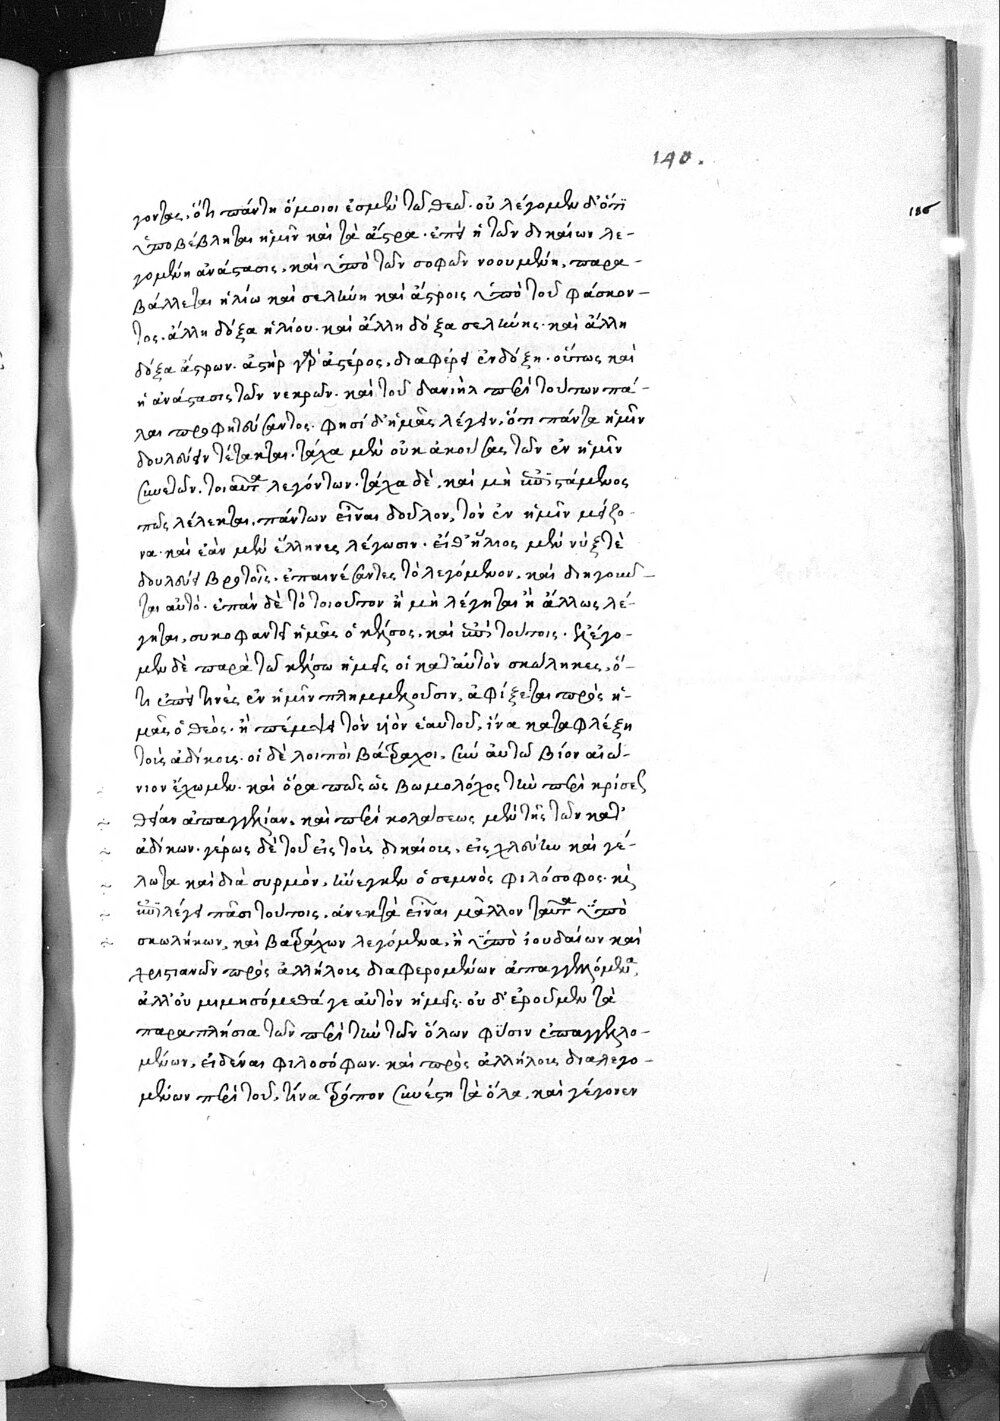 140.
186
γοντας, ὅτι πάντη ὅμοιοι ἐσμὲν τῶ θεῶ. οὐ λέγομεν δ' ὅτι
ὑποβέβληται ἡμῖν καὶ τὰ ἄστρα. ἐπεὶ ἡ τῶν δικαίων λε-
γομένη ἀνάστασις, καὶ ὑπὸ τῶν σοφῶν νοουμένη, παρα-
βάλλεται ἡλίω καὶ σελήνη καὶ ἄστροις ὑπὸ τοῦ φάσκον-
τος. ἄλλη δόξα ἡλίου. καὶ ἄλλη δόξα σελήνης. καὶ ἄλλη
δόξα ἄστρων. ἀστὴρ γὰρ ἀστέρος, διαφέρει ἐν δόξη. οὕτως καὶ
ἡ ἀνάστασις τῶν νεκρῶν. καὶ τοῦ δανιὴλ περὶ τούτων πά-
λαι προφητεύσαντος. φησὶ δ' ἡμᾶς λέγειν, ὅτι πάντα ἡμῖν
δουλεύειν τέτακται. τάχα μὲν οὐκ ἀκούσας τῶν ἐν ἡμῖν
συνετῶν, τοιαῦτα λεγόντων. τάχα δὲ, καὶ μὴ ἐπιστάμενος
πῶς λέλεκται, πάντων εἶναι δοῦλον, τὸν ἐν ἡμῖν μείζο-
να. καὶ ἐὰν μὲν ἕλληνες λέγωσιν. εἶθ' ἥλιος μὲν νύξ τε
δουλεύει βροτοῖς. ἐπαινέσαντες τὸ λεγόμενον, καὶ διηγοῦν-
ται αὐτό. ἐπὰν δὲ τὸ τοιοῦτον ἢ μὴ λέγηται ἢ ἄλλως λέ-
γηται, συκοφαντεῖ ἡμᾶς ὁ κέλσος, καὶ ἐπὶ τούτοις. λέγο-
μεν δὲ παρὰ τῶ κέλσω ἡμεῖς οἱ κατ' αὐτὸν σκώληκες, ὅ-
τι ἐπεί τινὲς ἐν ἡμῖν πλημμελοῦσιν, ἀφίξεται πρὸς ἡ-
μᾶς ὁ θεὸς. ἢ πέμψει τὸν υἱὸν ἑαυτοῦ, ἵνα καταφλέξη
τοὺς ἀδίκους. οἱ δὲ λοιποὶ βάτραχοι, σὺν αὐτῶ βίον αἰώ-
νιον ἔχωμεν. καὶ ὅρα πῶς ὡς βωμολόχος τὴν περὶ κρίσεως
θείαν ἀπαγγελίαν, καὶ περὶ κολάσεως μὲν τῆς τῶν κατ'
ἀδίκων. γέρως δὲ τοῦ εἰς τοὺς δικαίους, εἰς χλεύην καὶ γέ-
λωτα καὶ διὰ συρμὸν, ἤνεγκεν ὁ σεμνὸς φιλόσοφος. καὶ
ἐπιλέγει πᾶσι τούτοις, ἀνεκτὰ εἶναι μᾶλλον ταῦτα ὑπὸ
σκωλήκων, καὶ βατράχων λεγόμενα, ἢ ὑπὸ ἰουδαίων καὶ
χριστιανῶν πρὸς ἀλλήλους διαφερομένων ἀπαγγελόμενα.
ἀλλ' οὐ μιμησόμεθά γε αὐτὸν ἡμεῖς. οὐ δ' ἐροῦμεν τὰ
παραπλήσια τῶν περὶ τὴν τῶν ὅλων φύσιν ἐπαγγελο-
μένων, εἰδέναι φιλοσόφων. καὶ πρὸς ἀλλήλους διαλεγο-
μένων περὶ τοῦ, τίνα τρόπον συνέστη τὰ ὅλα, καὶ γέγονεν